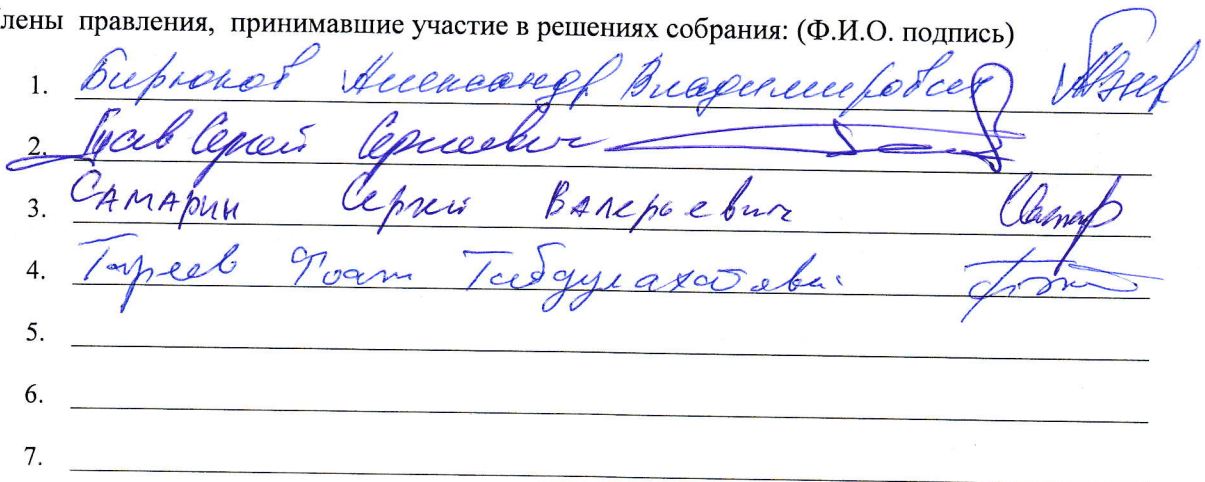 лены правления, принимавшие участие в решениях собрания: (Ф.И.О. подпись)
1. Бирюков Александр Владимирович
2. Сергей Сергеевич
3. Самарин Сергей Валерьевич
4. Тареев
5.
6.
7.